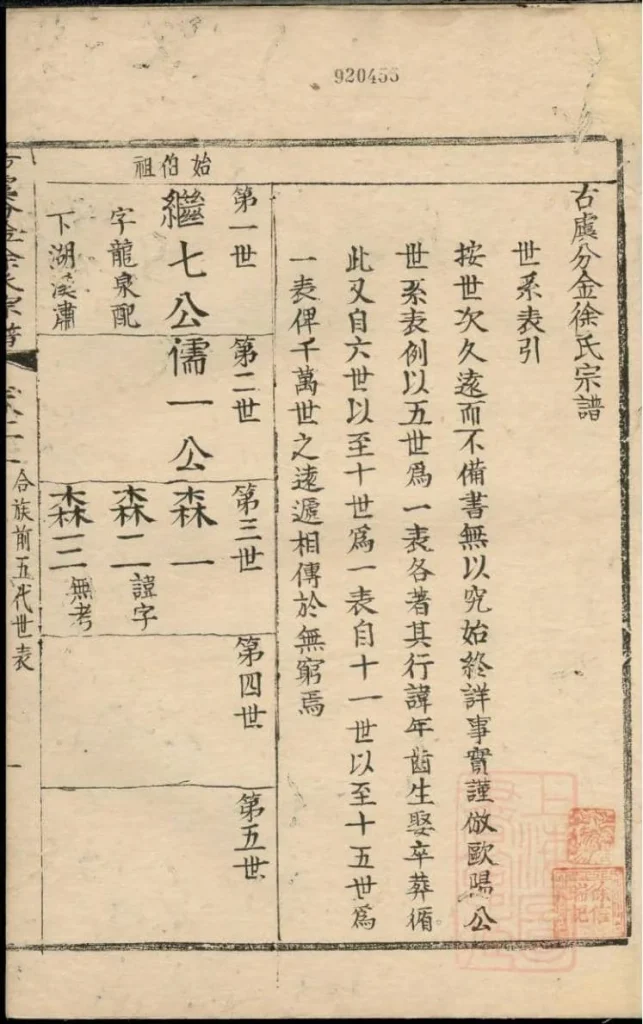 920455
古虞分金徐氏宗譜
世系表引
按世次久遠而不備書無以究始終詳事實謹倣歐陽公
世系表例以五世爲一表各著其行諱年齒生娶卒葬循
此又自六世以至十世爲一表自十一世以至十五世爲
一表俾千萬世之遠遞相傳於無窮焉
始伯祖
第一世
繼七公
字龍泉配
下湖溪肅
第二世
儒一公
第三世
森一
森二
諱字
森三
無考
第四世
第五世
合族前五代世表
一